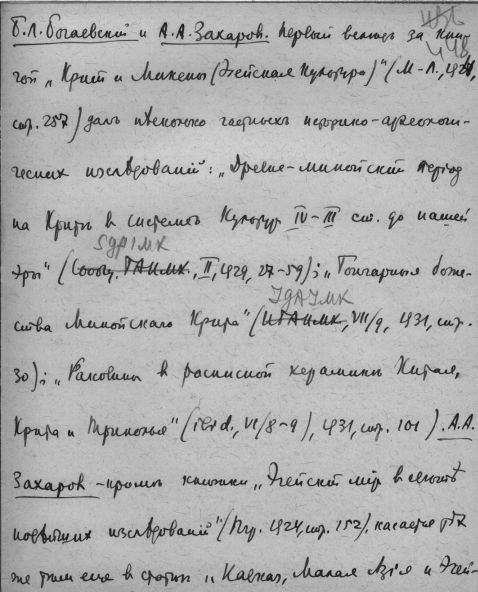 Б.Л. Богаевский и А.А. Захаров. Первый вслѣд за кни-
гой „Крит и Микены (Эгейская культура)" (М-Л., 1924,
стр. 257) дал нѣсколько частных историко-археологи-
ческих изслѣдований: „Древне-минойский период
на Критѣ в системѣ культур IV–III ст. до нашей
SGAIMK
эры" (Сообщ. ГАИМК, II, 1929, 27-59); „Гончарныя боже-
IGAIMK
ства Минойскаго Крита" (ИГАИМК, VII/9, 1931, стр.
30); „Раковины в расписной керамикѣ Китая,
Крита и Триполья" (ibid., VI/8-9), 1931, стр. 101). А.А.
Захаров - кромѣ книжки „Эгейский мір в свѣтѣ
новѣйших изслѣдований" (Пгр. 1924, стр. 152), касается тѣх
же тем еще в статьѣ „Кавказ, Малая Азія и Эгей-